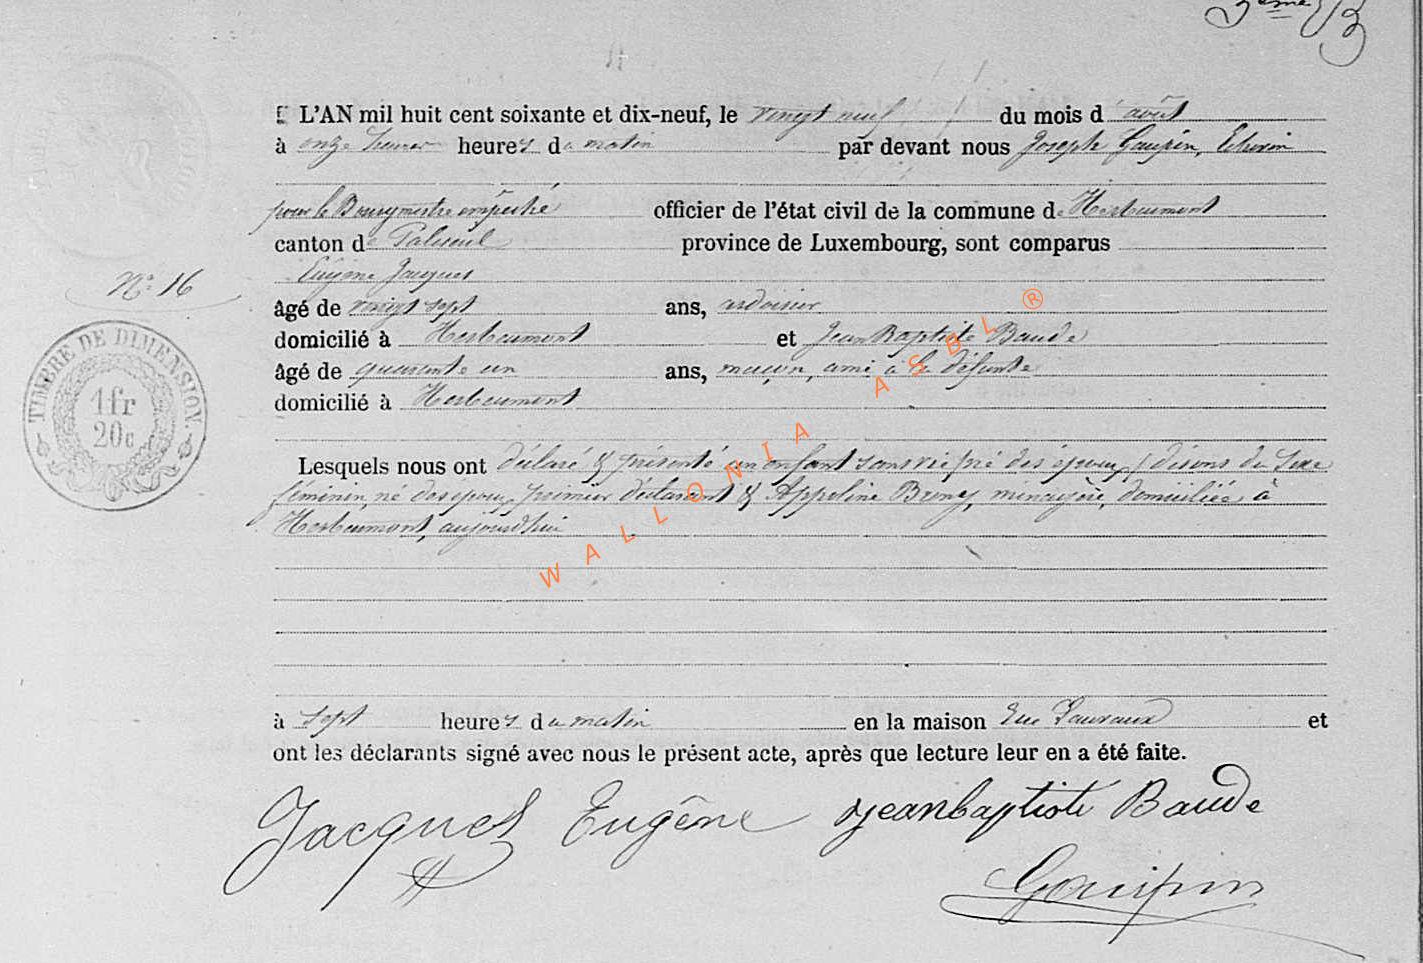 3ème 13
L'AN mil huit cent soixante et dix-neuf, le vingt neuf du mois d'août
à onze heures heures du matin par devant nous Joseph Goupin, Echevin
pour le Bourgmestre empêché officier de l'état civil de la commune de Herbeumont
canton de Paliseul province de Luxembourg, sont comparus
Eugène Jacques
N° 16
âgé de vingt sept ans, ardoisier
domicilié à Herbeumont et Jean Baptiste Baude
âgé de quarante un ans, maçon, ami à la défunte
domicilié à Herbeumont
TIMBRE DE DIMENSION.
1 fr
20c
Lesquels nous ont déclaré & présenté un enfant sans vie né des époux, disons du Sexe
féminin, né des époux, premier déclarant & Appoline Breny, ménagère, domiciliée à
Herbeumont, aujourd'hui
à sept heures du matin en la maison Rue Lauvaux et
ont les déclarants signé avec nous le présent acte, après que lecture leur en a été faite.
Jacques Eugêne jeanbaptiste Baude
Goupin
WALLONIA ASBL ®